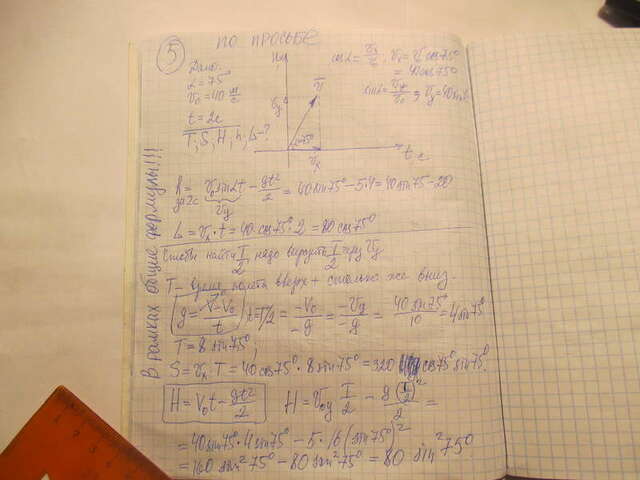 5
по просьбе
Дано:
α = 75°
V₀ = 40 м/с
t = 2c
T; S, H, h, L - ?
H,м
V⃗
Vy
α=75°
Vx
t, c
cosα = Vx/V, Vx = V cos75°
= 40cos75°
sinα = Vy/V₀ ⇒ Vy = 40 sin
h = V₀ sinαt − gt²/2 = 40 sin75° − 5·4 = 40 sin75 − 20
за 2с
Vy
L = Vx · t = 40 · cos75° · 2 = 80 cos75°
Чтобы найти T/2, надо выразить T/2 через Vy
T - время полёта вверх + столько же вниз.
g = V − V₀ / t
t = T/2 = −V₀/−g = −Vy/−g = 40 sin75°/10 = 4 sin75°
T = 8 sin75°;
S = Vx · T = 40 cos75° · 8 sin75° = 320 cos75° sin75°.
H = V₀t − gt²/2
H = V₀y T/2 − g(T/2)²/2 =
= 40 sin75° · 4 sin75° − 5 · 16 (sin75°)²
= 160 sin²75° − 80 sin²75° = 80 sin²75°.
В рамках общие формулы!!!